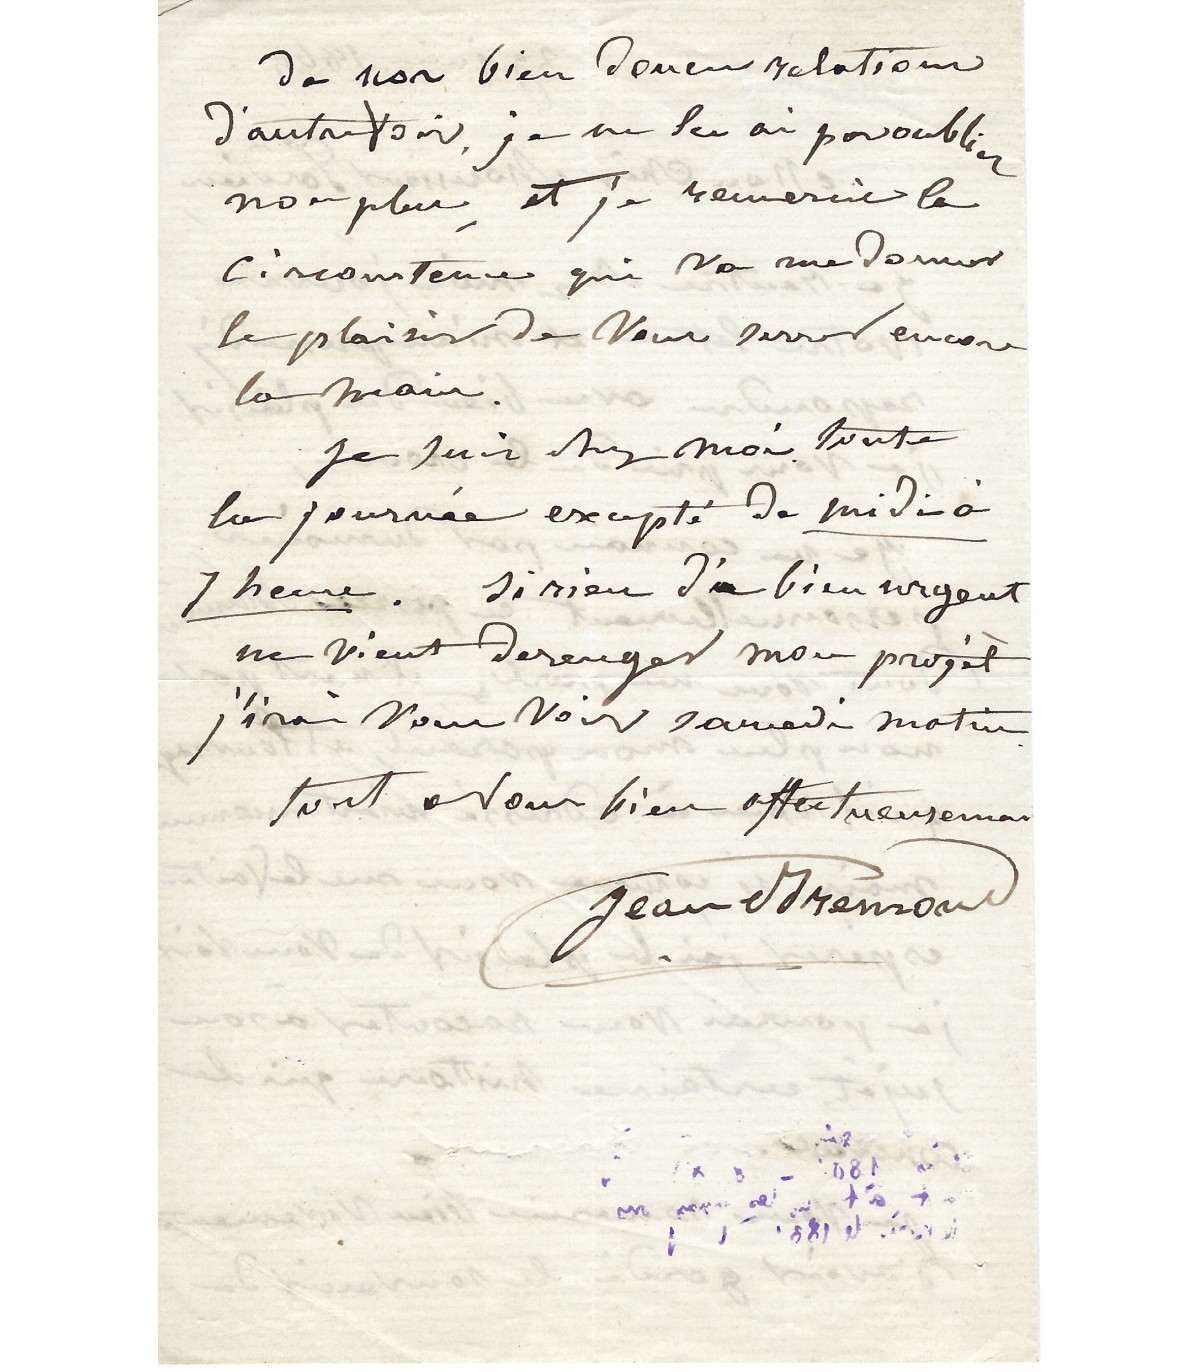 de nos bien douces relations
d'autrefois, je ne les ai pas oublier
non plus, et je remercie la
circonstence qui va me donner
le plaisir de vous serrer encore
la main.
je suis chez moi toute
la journée excepté de midi à
7 heures. Si rien d'e bien urgent
ne vient derenger mon projèt
j'irai vous voir samedi matin.
tout a vous bien affectueusemen
Jean